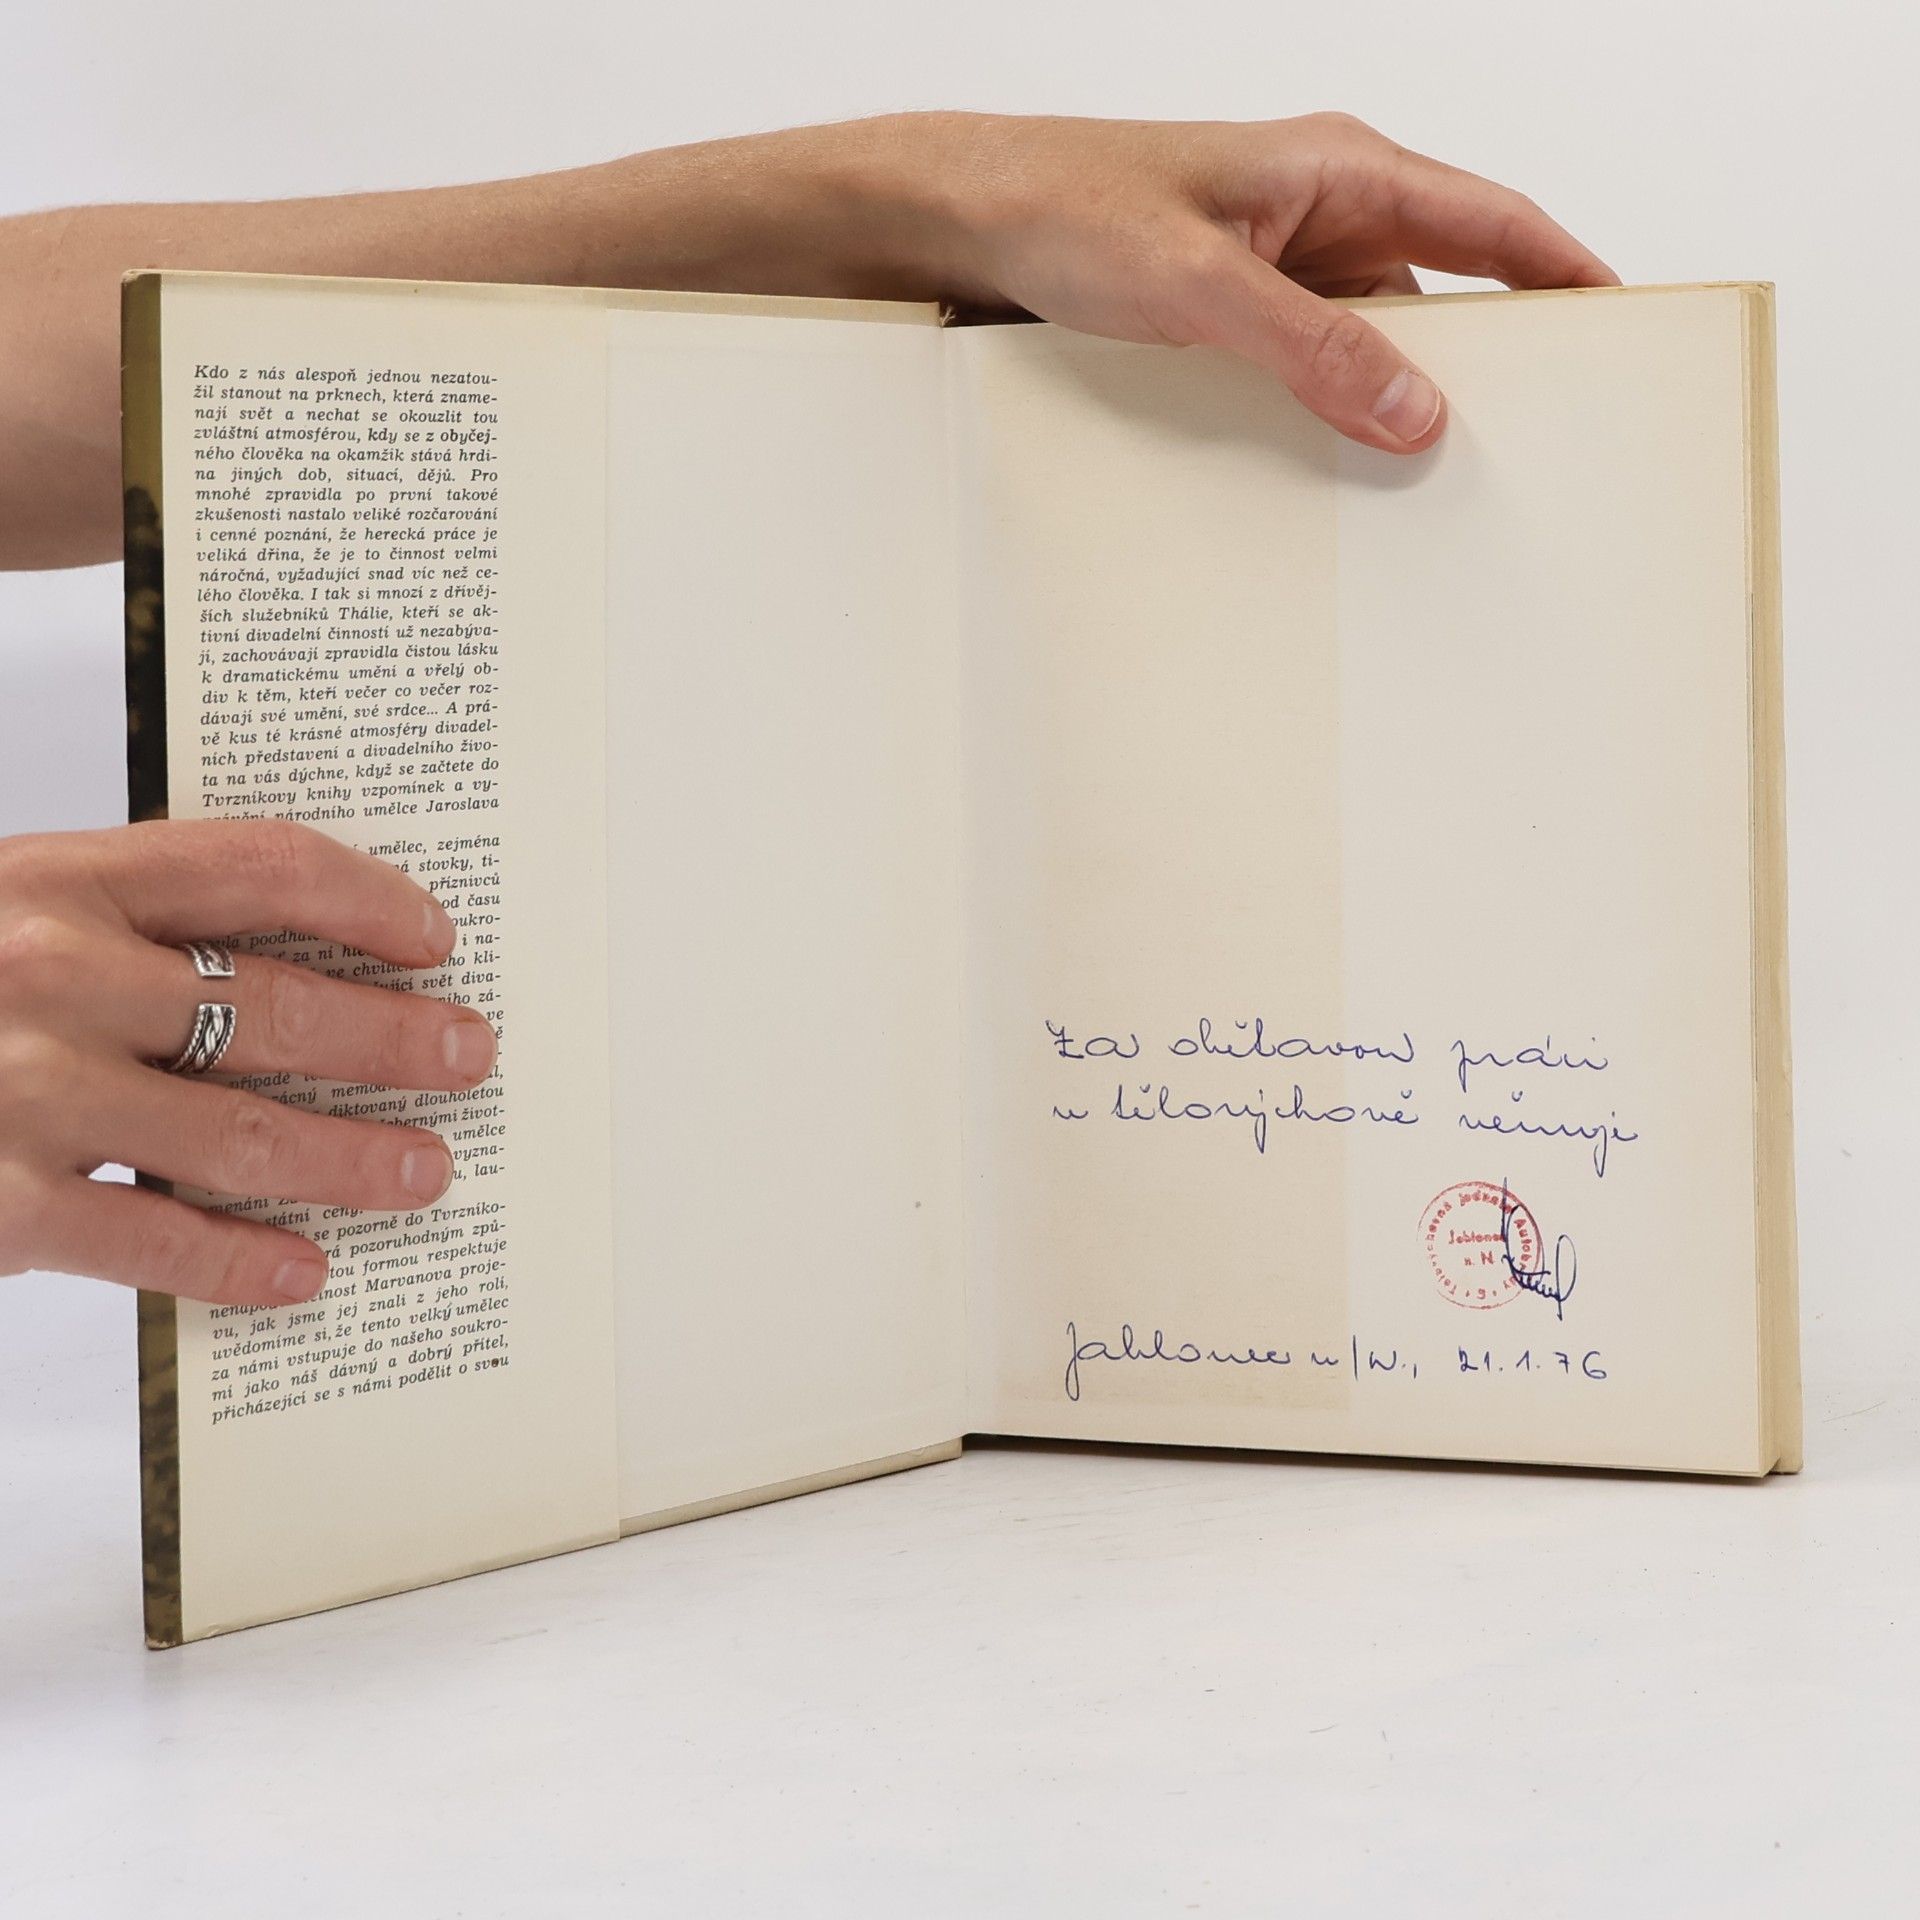 Kdo z nás alespoň jednou nezatou-
žil stanout na prknech, která zname-
nají svět a nechat se okouzlit tou
zvláštní atmosférou, kdy se z obyčej-
ného člověka na okamžik stává hrdi-
na jiných dob, situací, dějů. Pro
mnohé zpravidla po první takové
zkušenosti nastalo veliké rozčarování
i cenné poznání, že herecká práce je
veliká dřina, že je to činnost velmi
náročná, vyžadující snad víc než ce-
lého člověka. I tak si mnozí z dřívěj-
ších služebníků Thálie, kteří se ak-
tivní divadelní činností už nezabýva-
jí, zachovávají zpravidla čistou lásku
k dramatickému umění a vřelý ob-
div k těm, kteří večer co večer roz-
dávají své umění, své srdce... A prá-
vě kus té krásné atmosféry divadel-
ních představení a divadelního živo-
ta na vás dýchne, když se začtete do
Tvrzníkovy knihy vzpomínek a vy-
národního umělce Jaroslava
umělec, zejména
stovky, ti-
příznivců
od času
oukro-
i na-
za ní
ve kli-
svět diva-
zá-
ve
případě
memoá
diktovaný dlouholetou
život-
umělce
vyzna-
lau-
státní ceny.
se pozorně do Tvrzníko-
rá pozoruhodným způ-
tou formou respektuje
Marvanova proje-
vu, jak jsme jej znali z jeho rolí,
uvědomíme si, že tento velký umělec
za námi vstupuje do našeho soukro-
mí jako náš dávný a dobrý přítel,
přicházející se s námi podělit o svou
Za obětavou práci
v tělovýchově věnuje
Tělovýchovná jednota Autobrzdy
Jablonec
n. N
Jablonec n/N., 21.1.76